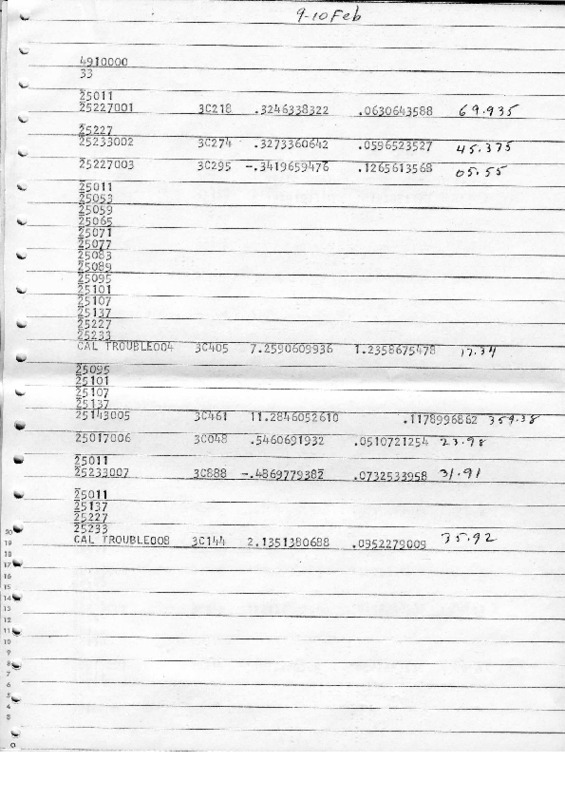 9-10 Feb
4910000
33
25011
25227001 3C218 .3246338322 .0630643588 69.935
25227
25233002 3C274 .3273360642 .0596523527 45.375
25227003 3C295 -.3419659476 .1265613568 05.55
25011
25053
25059
25065
25071
25077
25083
25089
25095
25101
25107
25137
25227
25233
CAL TROUBLE004 3C405 7.2590609936 1.2358675478 17.34
25095
25101
25107
25137
25143005 3C461 11.2846052610 .1178996862 359.38
25017006 3C048 .5460691932 .0510721254 23.98
25011
25233007 3C888 -.4869779382 .0732533958 31.91
25011
25137
25227
25233
CAL TROUBLE008 3C144 2.1351380688 .0952279009 35.92
20
19
18
17
16
15
14
13
12
11
10
9
8
7
6
5
4